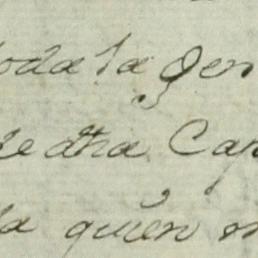 toda la gen
de dha Cap
la quien m